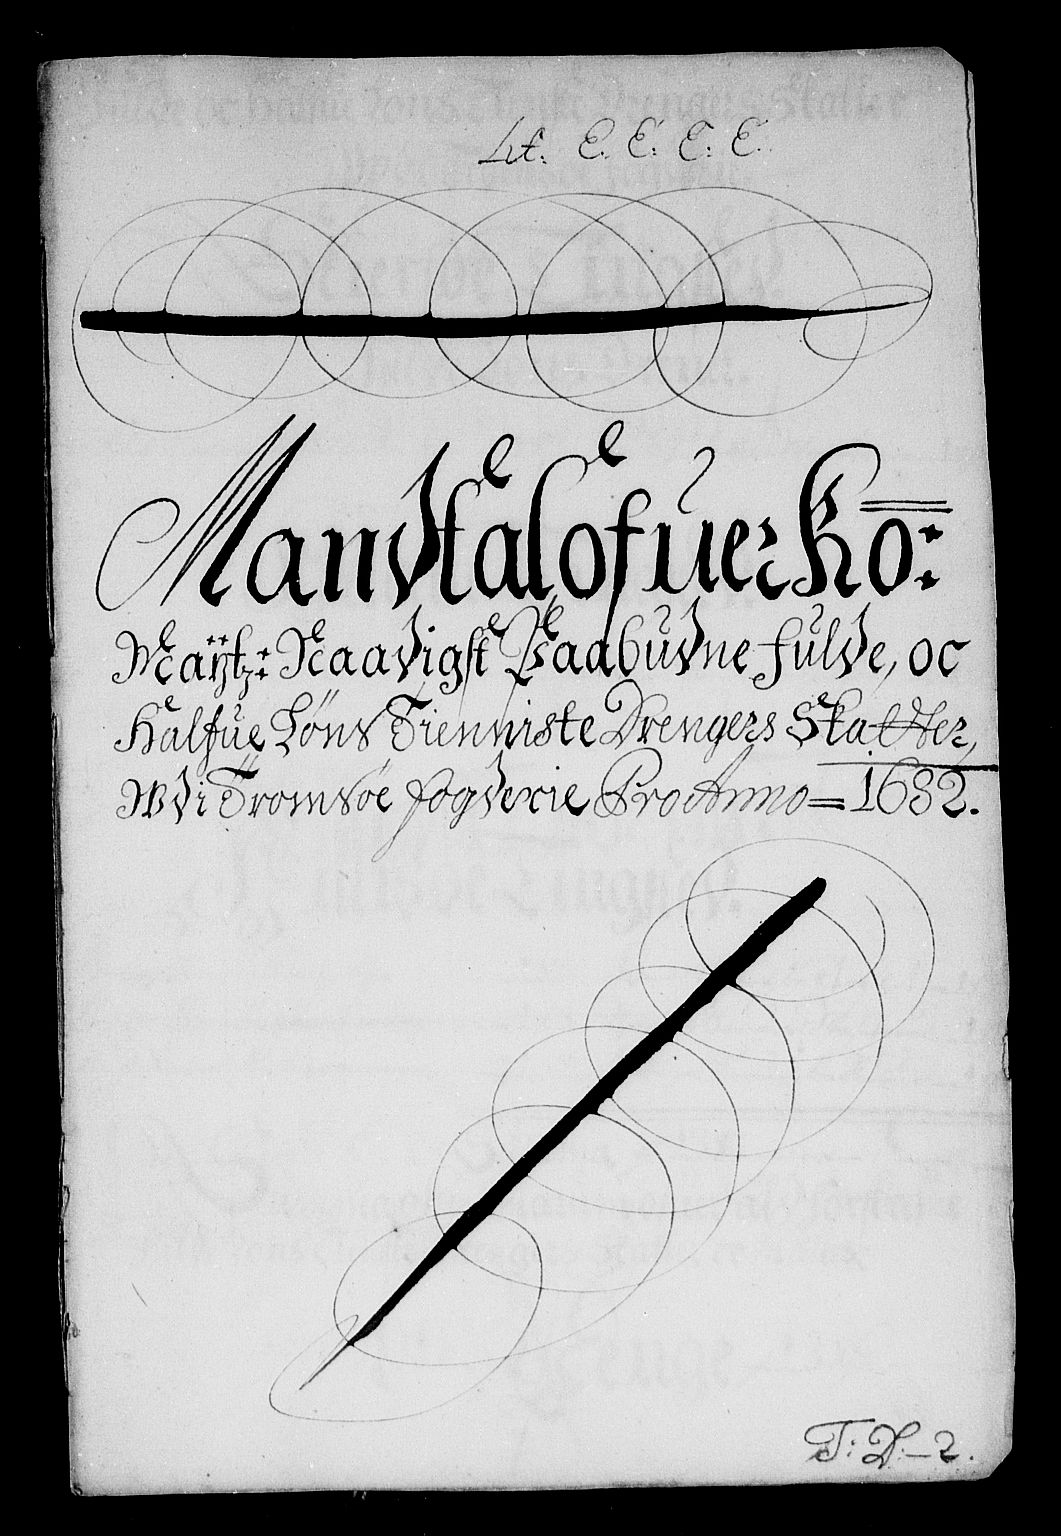 Lit. E. E. E. E.
Mandtal ofuer Ko:
Maÿtz: Naadigst Paabudne fulde, oc
halfue Løns Tienniste Drengers Skatter,
Wdi Tromsøe fogderie Pro Anno = 1682.
T: D: - 2.